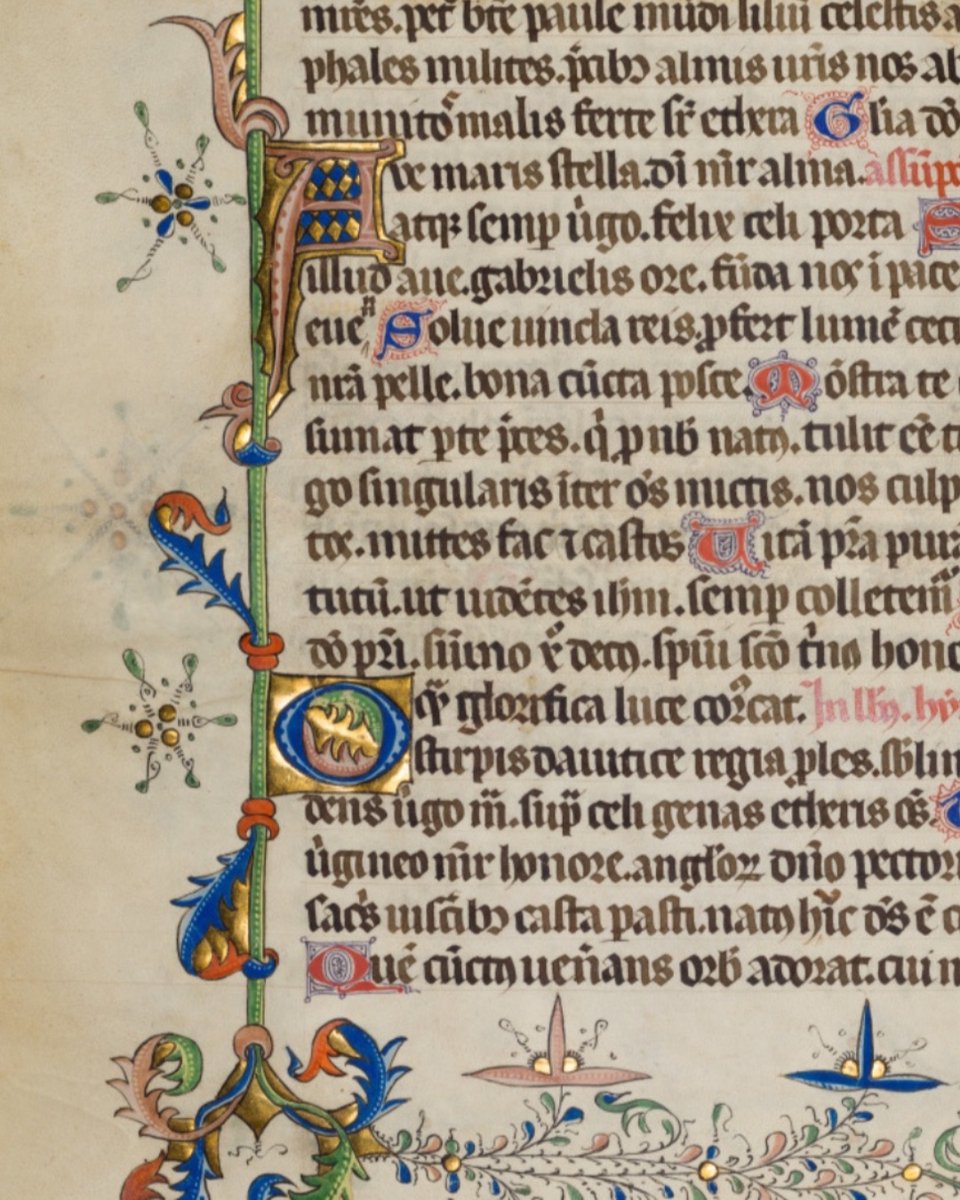 mr̄es. petr̄ btē paule mūdi liliū celestis a
phales milites. p̄cibꝫ almis ur̄is nos ab
munitō malis ferte sr̄ ethera Gl̄ia dō
Ave maris stella. di mr̄ alma. assūpc
atqꝫ semꝑ ùgo. felix celi porta
illud aue. gabrielis ore. fūda nos ī pace
eue Solue uincla reis. ꝓfert lumē cec
nr̄a pelle. bona cūcta posce. Mōstra te
sumat ꝑ te p̄ces. q̇ ꝓ nob̄ natꝯ. tulit eē t
go singularis īter ōs mitis. nos culp
tos. mittes fac ⁊ castos Uitā pr̄a pur
tutū. ut uidētes ihm. semꝑ colletem̄
dō pr̄i. sūmo xp̄o decꝯ. spūi scō tn̄ꝯ hono
O q̄ glorifica luce coꝛcat. In
stirpis dauitice regia ꝓles. sbl̄im
dens ùgo mr̄. suꝑ celi genas etheris oēs.
ùgineo mr̄ honore. angloꝝ dn̄o pector
sacs̄ uiscibꝫ casta pasti. natꝯ hīc dꝰs ē c
Quē cūctꝯ ueñans orb̄ adorat. cui n